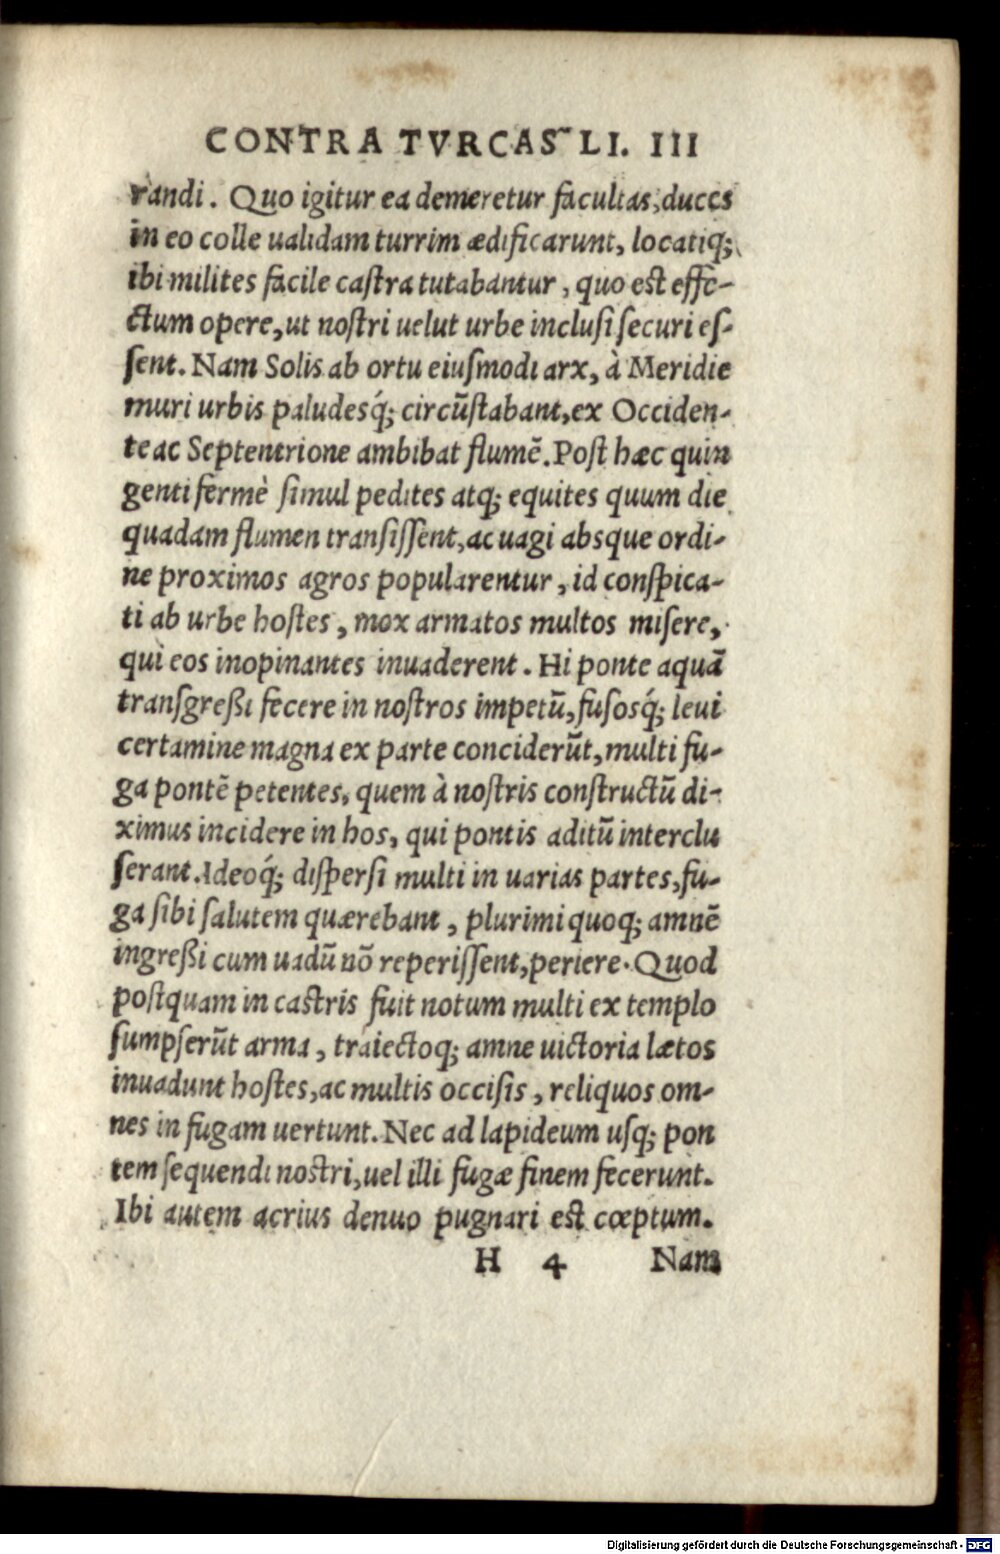 CONTRA TVRCAS LI. III
randi. Quo igitur ea demeretur facultas, duces
in eo colle ualidam turrim ædificarunt, locatiq;
ibi milites facile castra tutabantur, quo est effe-
ctum opere, ut nostri uelut urbe inclusi securi es-
sent. Nam Solis ab ortu eiusmodi arx, à Meridie
muri urbis paludesq́; circũstabant, ex Occiden-
te ac Septentrione ambibat flumẽ. Post hæc quin
genti fermè simul pedites atq; equites quum die
quadam flumen transissent, ac uagi absque ordi-
ne proximos agros popularentur, id conspica-
ti ab urbe hostes, mox armatos multos misere,
qui eos inopinantes inuaderent. Hi ponte aquã
transgreßi fecere in nostros impetũ, fusosq́; leui
certamine magna ex parte conciderũt, multi fu-
ga pontẽ petentes, quem à nostris constructũ di-
ximus incidere in hos, qui pontis aditũ interclu
serant. Adeoq́; dispersi multi in uarias partes, fu-
ga sibi salutem quærebant, plurimi quoq; amnẽ
ingreßi cum uadũ nõ reperissent, periere. Quod
postquam in castris fuit notum multi ex templo
sumpserũt arma, traiectoq; amne uictoria lætos
inuadunt hostes, ac multis occisis, reliquos om-
nes in fugam uertunt. Nec ad lapideum usq; pon
tem sequendi nostri, uel illi fugæ finem fecerunt.
Ibi autem acrius denuo pugnari est cœptum.
H 4 Nam
Digitalisierung gefördert durch die Deutsche Forschungsgemeinschaft - DFG